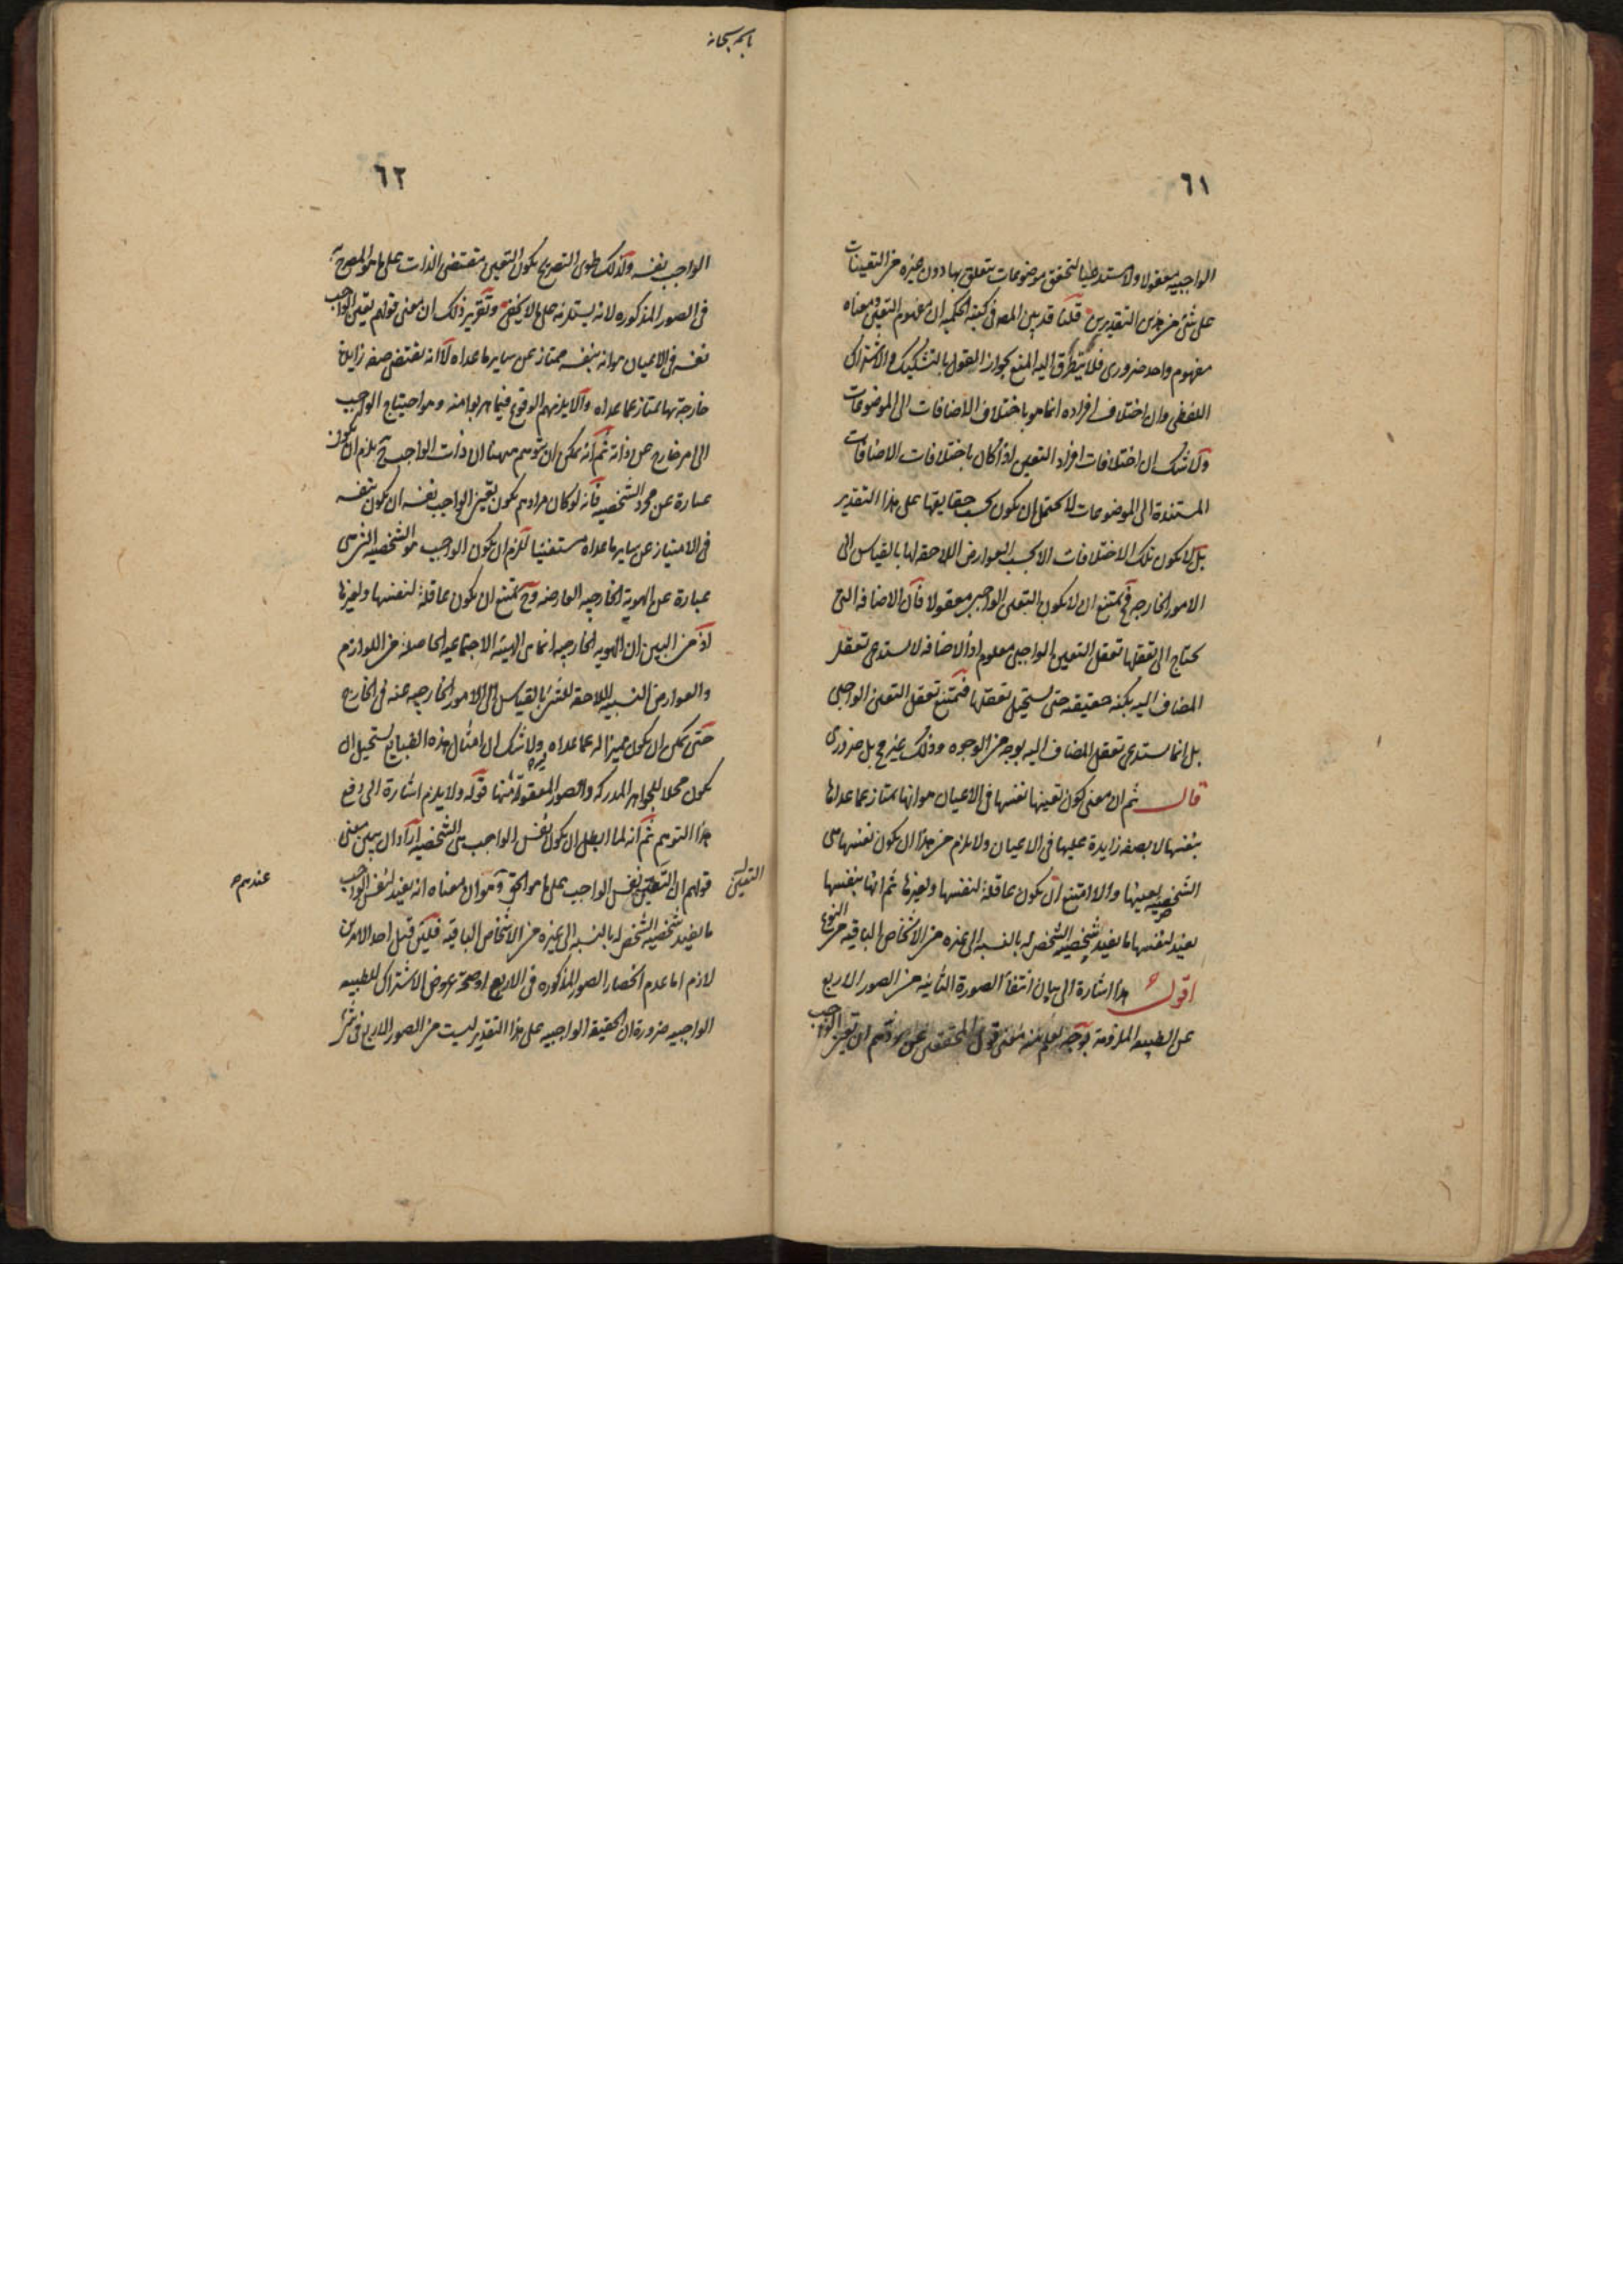 ٦١
الواجبيه معقولا ولا مستدعيا لتحقق موضوعات يتعلق بها دون غيره من التعينات
على شئ من هذين التقديرين قلنا قد بين المص فى كتبه الحكميه ان مفهوم التعين ومعناه
مفهوم واحد ضرورى فلا يتطرق اليه المنع بجواز القول بالتشكيك والاشتراك
اللفظى وان اختلاف افراده انما هو باختلاف الاضافات الى الموضوعات
ولا شك ان اختلافات افراد التعين اذا كان باختلافات الاضافات
المستندة الى الموضوعات لا يحتمل ان يكون بحسب حقايقها على هذا التقدير
بل لا يكون تلك الاختلافات الا بحسب العوارض اللاحقه لها بالقياس الى
الامور الخارجه فيمتنع ان لا يكون التعين الواجبى معقولا فان الاضافه التى
يحتاج الى تعقلها تعقل التعين الواجبى معلوم اذ الاضافه لا يستدعى تعقل
المضاف اليه بكنه حقيقته حتى يستحيل تعقلها فيمتنع تعقل التعين الواجبى
بل انما يستدعى تعقل المضاف اليه بوجه من الوجوه وذلك غير مح بل ضرورى
قال ثم ان معنى كون تعينها نفسها فى الاعيان هو انها يمتاز عما عداها
بنفسها لا بصفه زايدة عليها فى الاعيان ولا يلزم من هذا ان يكون نفسها هى
الشخصيه بعينها والا امتنع ان يكون عاقلة لنفسها ولغيرها ثم انها بنفسها
يفيد لنفسها ما يفيد شخصيه الشخص له بالنسبه الى غيره من الاشخاص الباقيه من النوع
اقول هذا اشارة الى بيان انتفا الصورة الثانيه من الصور الاربع
عن الطبيعه الملزومة بوجه يعلم منه معنى قول المحققين عن قولهم ان تعين الواجب
باسمه سبحانه
٦٢
الواجب بنفسه ولذلك طوى التصريح بكون التعين مقتضى الذات على ما هو المصرح به
فى الصور المذكوره لانه يستلزمه على ما لا يخفى وتقرير ذلك ان معنى قولهم يتعين الواجب
نفسه فى الاعيان هو انه بنفسه ممتاز عن ساير ما عداه لا انه يقتضى صفه زايدة
خارجة بها يمتاز عما عداه والا يلزمهم الوقوع فيما هربوا منه وهو احتياج الواجب
الى امر خارج عن ذاته ثم انه يمكن ان يتوهم ههنا ان ذات الواجب ح يلزم ان يكون
عبارة عن مجرد الشخصيه فانه لو كان مرادهم بكون تعين الواجب نفسه ان يكون بنفسه
فى الامتياز عن ساير ما عداه مستغنيا للزم ان يكون الواجب هو الشخصيه التى هى
عبارة عن الهوية الخارجيه العارضه وح يمتنع ان يكون عاقلة لنفسها ولغيرها
اذ من البين ان الهويه الخارجيه انما هى الهيئه الاجتماعيه الحاصلة من اللوازم
والعوارض النسبيه اللاحقه للشئ بالقياس الى الامور الخارجيه عنه فى الخارج
حتى يمكن ان يكون مميزا له عما عداه ولا شك ان امثال هذه القبايح يستحيل ان
يكون محلا للجواهر المدركه والصور المعقولة منها قوله ولا يلزم اشارة الى دفع
هذا التوهم ثم انه لما ابطل ان يكون نفس الواجب هى الشخصيه اراد ان يبين معنى
قولهم ان التعين نفس الواجب على ما هو الحق وهو ان معناه انه يفيد لنفس الواجب
ما يفيد شخصيه الشخص له بالنسبه الى غيره من الاشخاص الباقيه فلئن قيل احد الامرين
لازم اما عدم انحصار الصور المذكوره فى الاربع او صحة عروض الاشتراك للطبيعه
الواجبيه ضرورة ان الحقيقة الواجبيه على هذا التقدير ليست من الصور الاربع فى شئ
التعين
عندهم